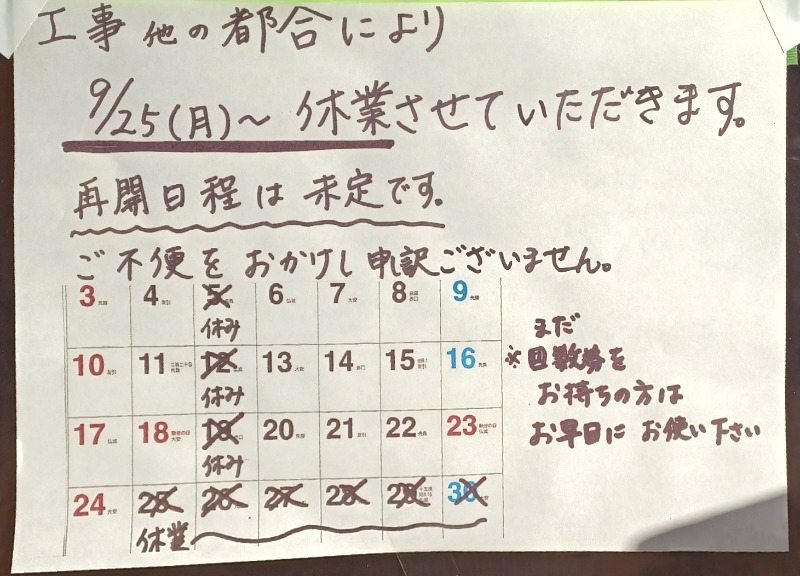 工事他の都合により
9/25(月)～ 休業させていただきます。
再開日程は 未定です。
ご不便をおかけし申訳ございません。
3 先勝 4 友引 5 6 仏滅 7 大安 8 赤口 9 先勝
休み
10 友引 11 12 13 大安 14 赤口 15 友引 16 先負
休み
17 仏滅 18 敬老の日 大安 19 20 先勝 21 友引 22 先負 23 秋分の日 仏滅
休み
24 大安 25 26 27 28 29 30
休業
まだ
※回数券を
お持ちの方は
お早日に お使い下さい